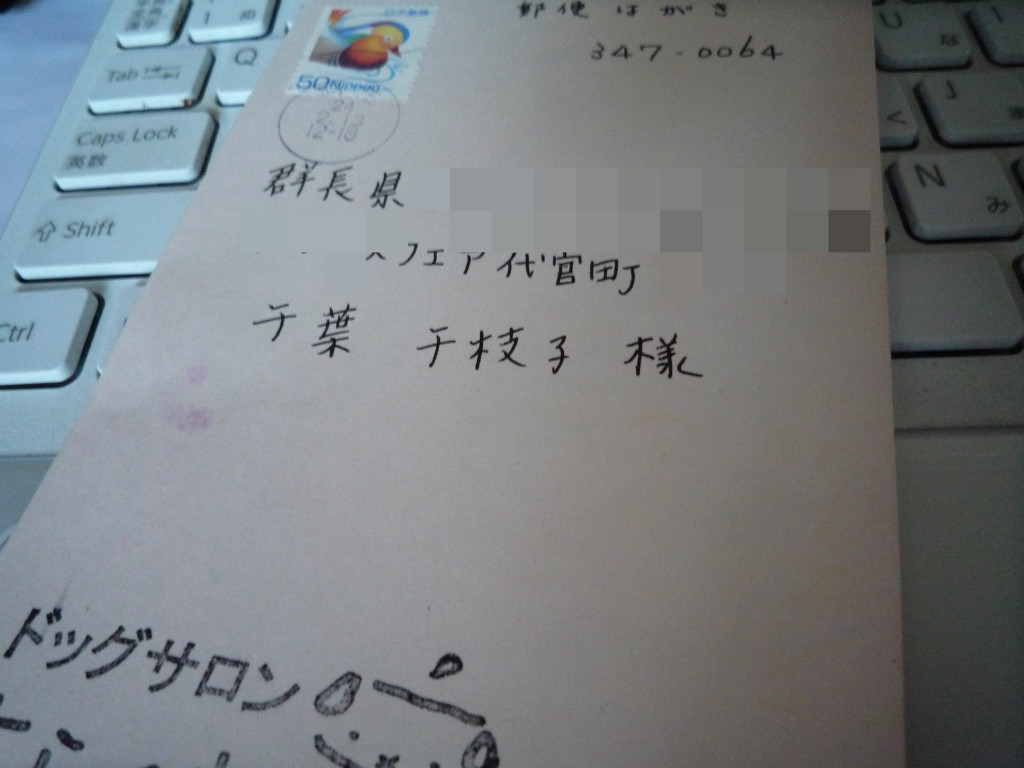 郵便はがき
347-0064
日本郵便
50 NIPPON
21
12-18
群長県
フェア代官町
千葉 千枝子 様
ドッグサロン
Tab
Q
Caps Lock
英数
Shift
Ctrl
1 ぬ
U
な
I
J
N
み
<